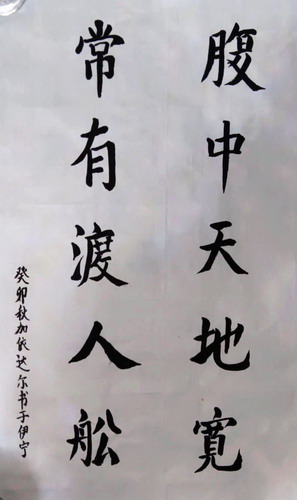 腹中天地寬
常有渡人船
癸卯秋加依达尔书于伊宁